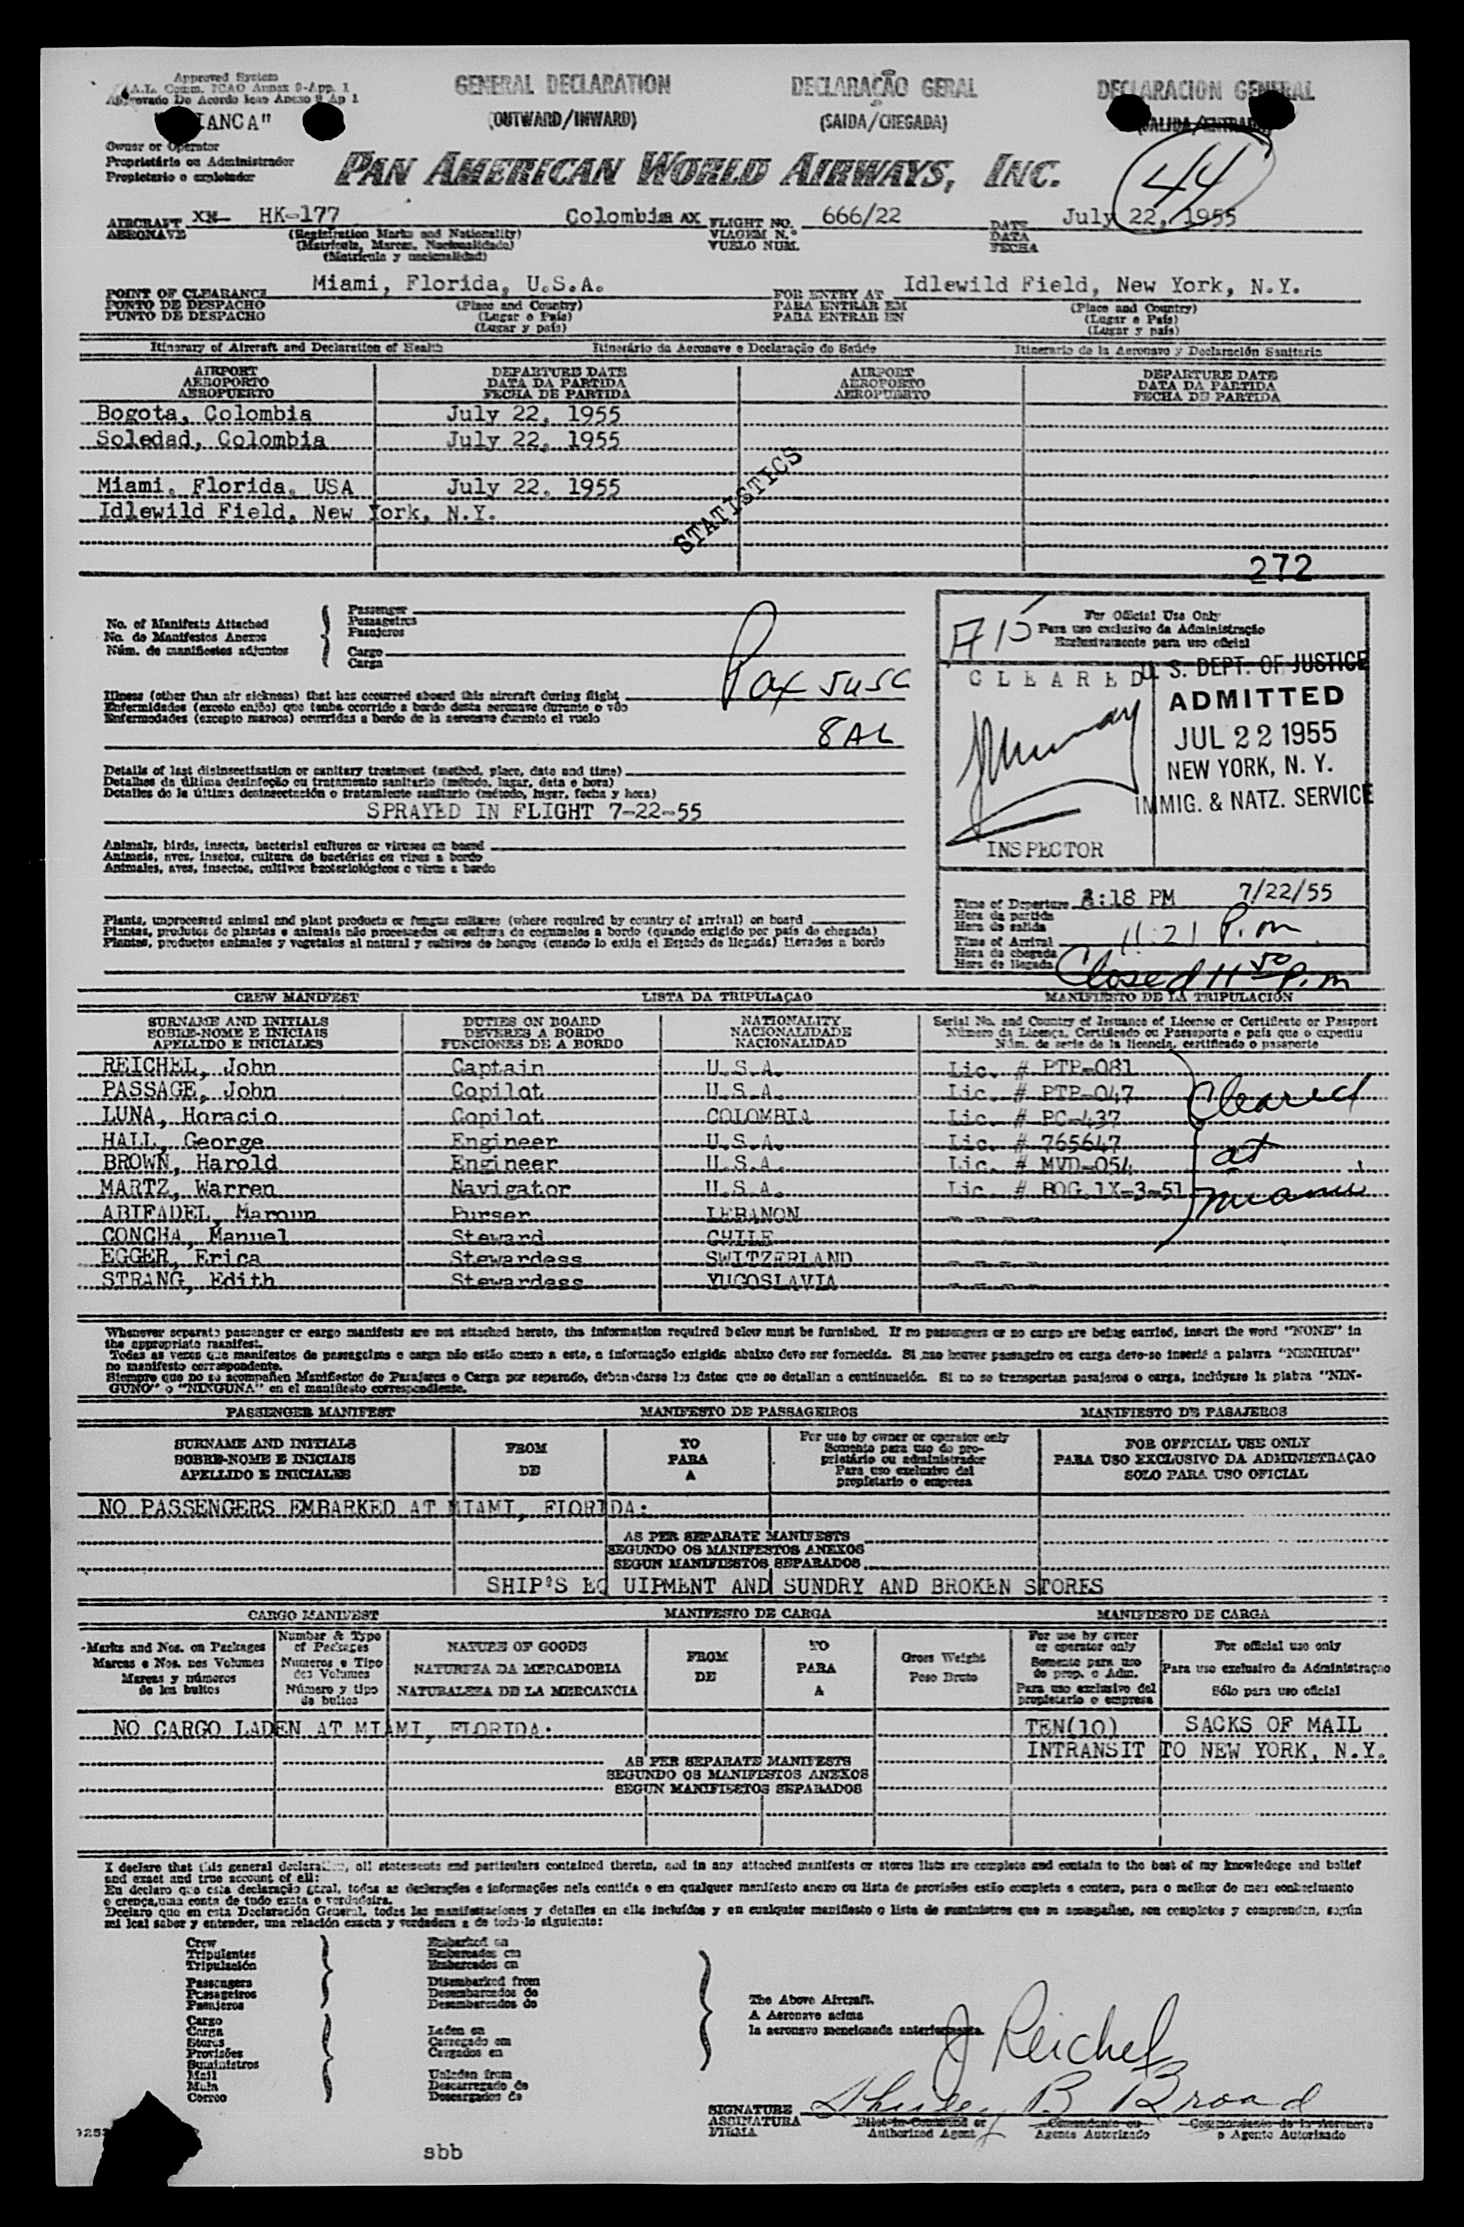 Approved System
A.L. Comm. ICAO Annex 9-App. 1
Aprovado De Acordo Icao Anexo 9 Ap 1
GENERAL DECLARATION
(OUTWARD/INWARD)
DECLARAÇÃO GERAL
(SAIDA/CHEGADA)
DECLARACION GENERAL
(SALIDA/ENTRADA)
IANCA"
Owner or Operator
Proprietário ou Administrador
Propietario o explotador
PAN AMERICAN WORLD AIRWAYS, INC.
44
AIRCRAFT HK-177 Colombia FLIGHT NO. 666/22 DATE July 22, 1955
AERONAVE (Registration Marks and Nationality) VIAGEM N.º DATA
(Matrícula, Marcas, Nacionalidade) VUELO NUM. FECHA
(Matricula y nacionalidad)
POINT OF CLEARANCE Miami, Florida, U.S.A. FOR ENTRY AT Idlewild Field, New York, N.Y.
PONTO DE DESPACHO (Place and Country) PARA ENTRAR EM (Place and Country)
PUNTO DE DESPACHO (Lugar e País) PARA ENTRAR EN (Lugar e País)
(Lugar y país) (Lugar y país)
Itinerary of Aircraft and Declaration of Health Itinerário da Aeronave e Declaração de Saúde Itinerario de la Aeronave y Declaración Sanitaria
AIRPORT DEPARTURE DATE AIRPORT DEPARTURE DATE
AEROPORTO DATA DA PARTIDA AEROPORTO DATA DA PARTIDA
AEROPUERTO FECHA DE PARTIDA AEROPUERTO FECHA DE PARTIDA
Bogota, Colombia July 22, 1955
Soledad, Colombia July 22, 1955
Miami, Florida, USA July 22, 1955
Idlewild Field, New York, N.Y.
STATISTICS
272
No. of Manifests Attached
No. de Manifestos Anexos
Núm. de manifiestos adjuntos
Passenger
Passageiros
Pasajeros
Cargo
Carga
Pax 54 SC
8 AL
Illness (other than air sickness) that has occurred aboard this aircraft during flight
Enfermidades (exceto enjôo) que tenha ocorrido a bordo desta aeronave durante o vôo
Enfermedades (excepto mareos) ocurridas a bordo de la aeronave durante el vuelo
Details of last disinsectisation or sanitary treatment (method, place, date and time)
Detalhes da última desinfeção ou tratamento sanitario (método, lugar, data e hora)
Detalles de la última desinsectación o tratamiento sanitario (método, lugar, fecha y hora)
SPRAYED IN FLIGHT 7-22-55
Animals, birds, insects, bacterial cultures or viruses on board
Animais, aves, insetos, cultura de bactérias ou virus a bordo
Animales, aves, insectos, cultivos bacteriológicos o virus a bordo
Plants, unprocessed animal and plant products or fungus cultures (where required by country of arrival) on board
Plantas, produtos de plantas e animais não processados ou cultura de cogumelos a bordo (quando exigido por país de chegada)
Plantas, productos animales y vegetales al natural y cultivos de hongos (cuando lo exija el Estado de llegada) llevados a bordo
For Official Use Only
Para uso exclusivo da Administração
Exclusivamente para uso oficial
A 15
CLEARED
INSPECTOR
U. S. DEPT. OF JUSTICE
ADMITTED
JUL 22 1955
NEW YORK, N. Y.
IMMIG. & NATZ. SERVICE
Time of Departure 8:18 PM 7/22/55
Hora da partida
Hora de salida
Time of Arrival 11:21 P.m
Hora da chegada
Hora de llegada
Closed 11 50 P.m
CREW MANIFEST LISTA DA TRIPULAÇAO MANIFIESTO DE LA TRIPULACIÓN
SURNAME AND INITIALS DUTIES ON BOARD NATIONALITY Serial No. and Country of Issuance of License or Certificate or Passport
SOBRE-NOME E INICIAIS DEVERES A BORDO NACIONALIDADE Número da Licença, Certificado ou Passaporte e país que o expediu
APELLIDO E INICIALES FUNCIONES DE A BORDO NACIONALIDAD Núm. de serie de la licencia, certificado o pasaporte
REICHEL, John Captain U.S.A. Lic. # PTP-081
PASSAGE, John Copilot U.S.A. Lic. # PTP-047
LUNA, Horacio Copilot COLOMBIA Lic. # PC-437
HALL, George Engineer U.S.A. Lic. # 765647
BROWN, Harold Engineer U.S.A. Lic. # MVD-054
MARTZ, Warren Navigator U.S.A. Lic. # BOG.1X-3-51
ABIFADEL, Maroun Purser LEBANON - - - -
CONCHA, Manuel Steward CHILE
EGGER, Erica Stewardess SWITZERLAND - - - -
STRANG, Edith Stewardess YUGOSLAVIA - - - -
Cleared
at
Miami
Whenever separate passenger or cargo manifests are not attached hereto, the information required below must be furnished. If no passengers or no cargo are being carried, insert the word "NONE" in
the appropriate manifest.
Todas as vezes que manifestos de passageiros e carga não estão anexo a este, a informação exigida abaixo deve ser fornecida. Si nao houver passageiro ou carga deve-se inserir a palavra "NENHUM"
no manifesto correspondente.
Siempre que no se acompañen Manifiestos de Pasajeros o Carga por separado, deben darse los datos que se detallan a continuación. Si no se transportan pasajeros o carga, inclúyase la plabra "NIN-
GUNO" o "NINGUNA" en el manifiesto correspondiente.
PASSENGER MANIFEST MANIFESTO DE PASSAGEIROS MANIFIESTO DE PASAJEROS
SURNAME AND INITIALS FROM TO For use by owner or operator only FOR OFFICIAL USE ONLY
SOBRE-NOME E INICIAIS DE PARA Somente para uso do pro- PARA USO EXCLUSIVO DA ADMINISTRAÇAO
APELLIDO E INICIALES A prietário ou administrador SOLO PARA USO OFICIAL
Para uso exclusivo del
propietario o empresa
NO PASSENGERS EMBARKED AT MIAMI, FLORIDA:
AS PER SEPARATE MANIFESTS
SEGUNDO OS MANIFESTOS ANEXOS
SEGUN MANIFIESTOS SEPARADOS
SHIP'S EQUIPMENT AND SUNDRY AND BROKEN STORES
CARGO MANIFEST MANIFESTO DE CARGA MANIFIESTO DE CARGA
Marks and Nos. on Packages Number & Type of Packages NATURE OF GOODS FROM TO Gross Weight For use by owner or operator only For official use only
Marcas e Nos. nos Volumes Numeros e Tipo dos Volumes NATUREZA DA MERCADORIA DE PARA Peso Bruto Somente para uso do prop. o Adm. Para uso exclusivo da Administraçao
Marcas y números de los bultos Número y tipo de bultos NATURALEZA DE LA MERCANCIA A Para uso exclusivo del propietario o empresa Sólo para uso oficial
NO CARGO LADEN AT MIAMI, FLORIDA: TEN(10) SACKS OF MAIL
INTRANSIT TO NEW YORK, N.Y.
AS PER SEPARATE MANIFESTS
SEGUNDO OS MANIFESTOS ANEXOS
SEGUN MANIFIESTOS SEPARADOS
I declare that this general declaration, all statements and particulars contained therein, and in any attached manifests or stores lists are complete and contain to the best of my knowledege and belief
and exact and true account of all:
Eu declaro que esta declaração geral, todos as declarações e informações nela contida e em qualquer manifesto anexo ou lista de provisões estão completa e contem, para o melhor do meu conhecimento
e crença,uma conta de tudo exata e verdadeira.
Declaro que en esta Declaración General, todas las manifestaciones y detalles en ella incluídos y en cualquier manifiesto o lista de suministros que se acompañan, son completos y comprenden, según
mi leal saber y entender, una relación exacta y verdadera a de todo-lo siguiente:
Crew Embarked on
Tripulantes Embarcados em
Tripulación Embarcados en
Passengers Disembarked from
Passageiros Desembarcados de
Pasajeros Desembarcados de
Cargo
Carga
Stores Laden on
Provisões Carregado em
Suministros Cargados en
Mail Unladen from
Mala Descarregado de
Correo Descargados de
The Above Aircraft.
A Aeronave acima
la aeronave mencionada anteriormente.
J Reichel
Shirley B Broad
SIGNATURE
ASSINATURA Pilot-in-Command or Comandante ou Commandante de la Aeronave
FIRMA Authorized Agent Agente Autorizado o Agente Autorizado
sbb